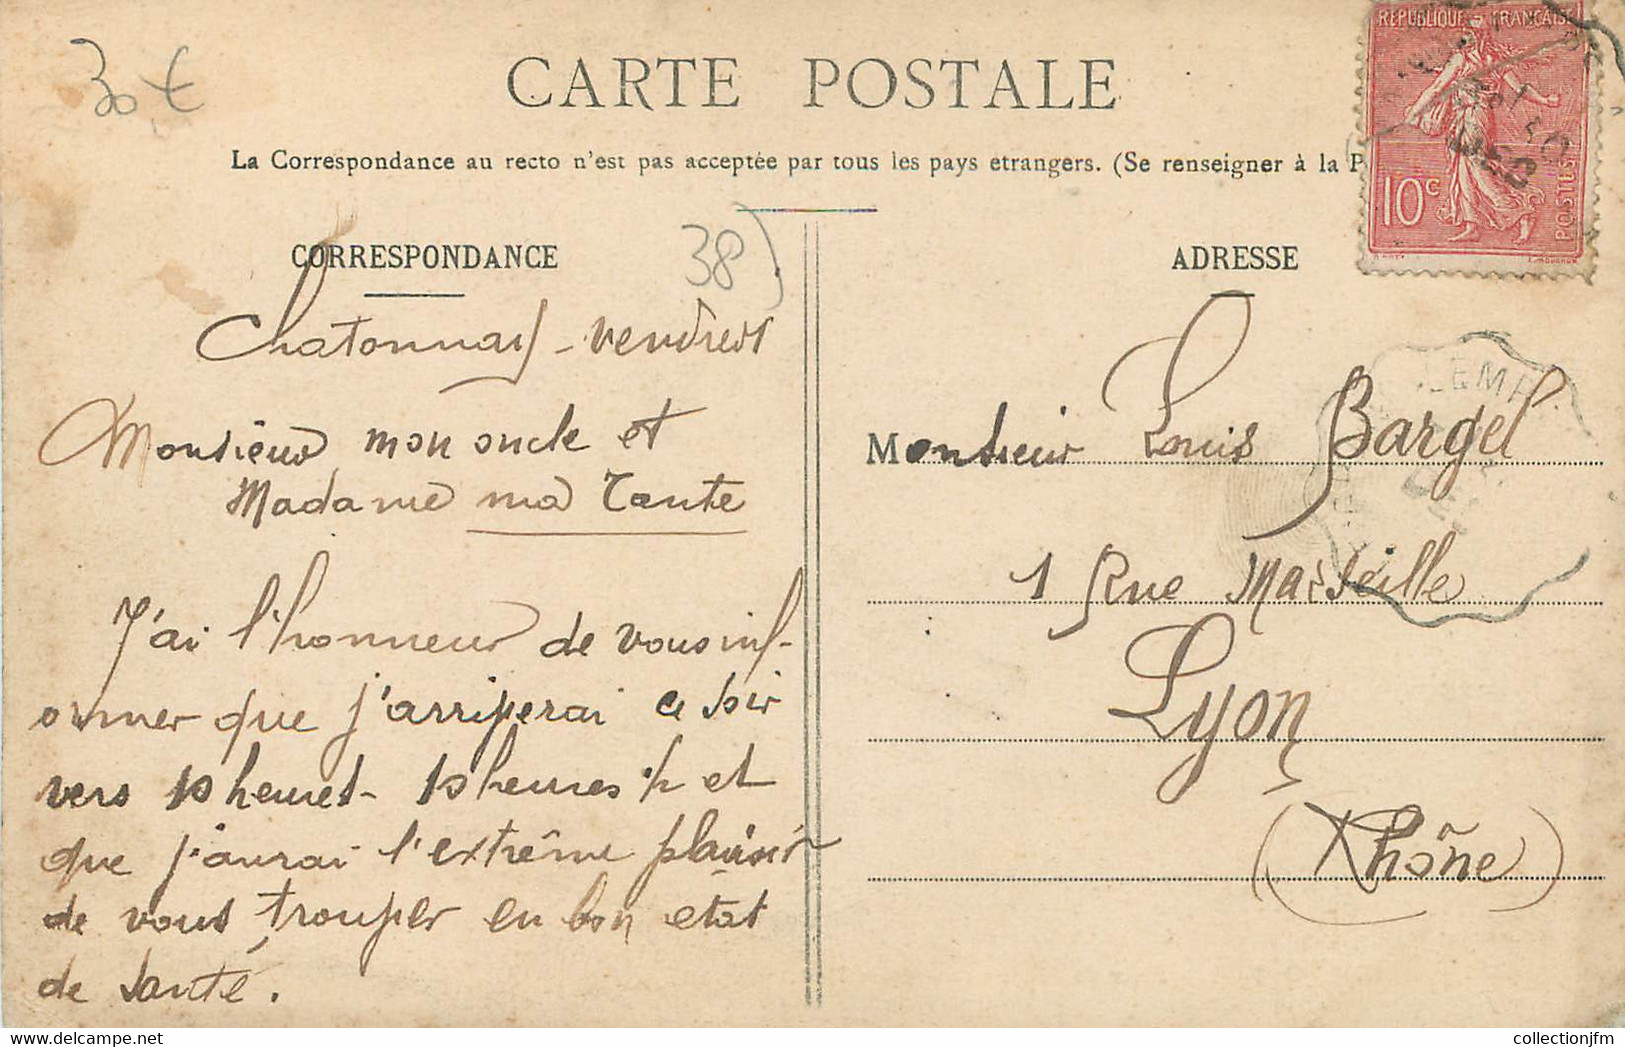 30 €
CARTE POSTALE
RÉPUBLIQUE FRANÇAISE
10c
POSTES
La Correspondance au recto n'est pas acceptée par tous les pays etrangers. (Se renseigner à la P
CORRESPONDANCE
38)
ADRESSE
Chatonnay - vendredi
Monsieur mon oncle et
Madame ma Tante
J'ai l'honneur de vous inf-
ormer que j'arriverai ce soir
vers 10 heures - 10 heures ½ et
que j'aurai l'extrême plaisir
de vous trouver en bon état
de santé.
Monsieur Louis Bargel
1 Rue Marseille
Lyon
(Rhône)
collectionjfm